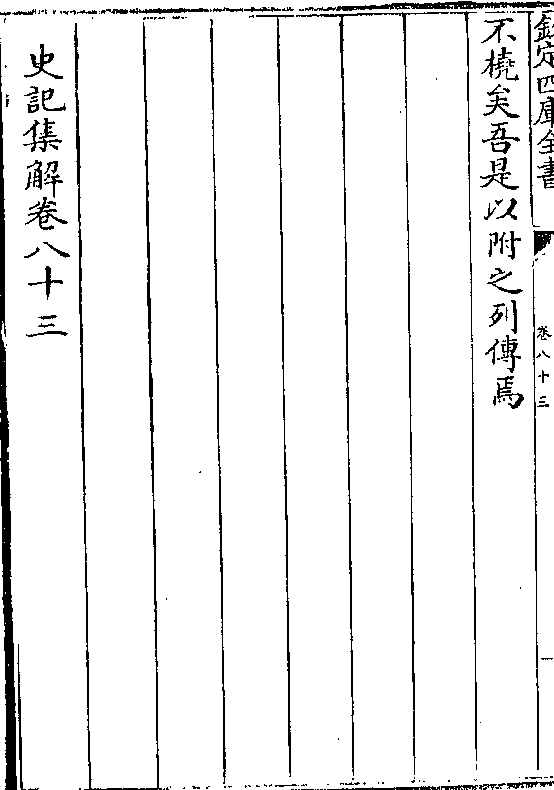 欽定四庫全書
卷八十三
不橈矣吾是以附之列傳焉
史記集解卷八十三